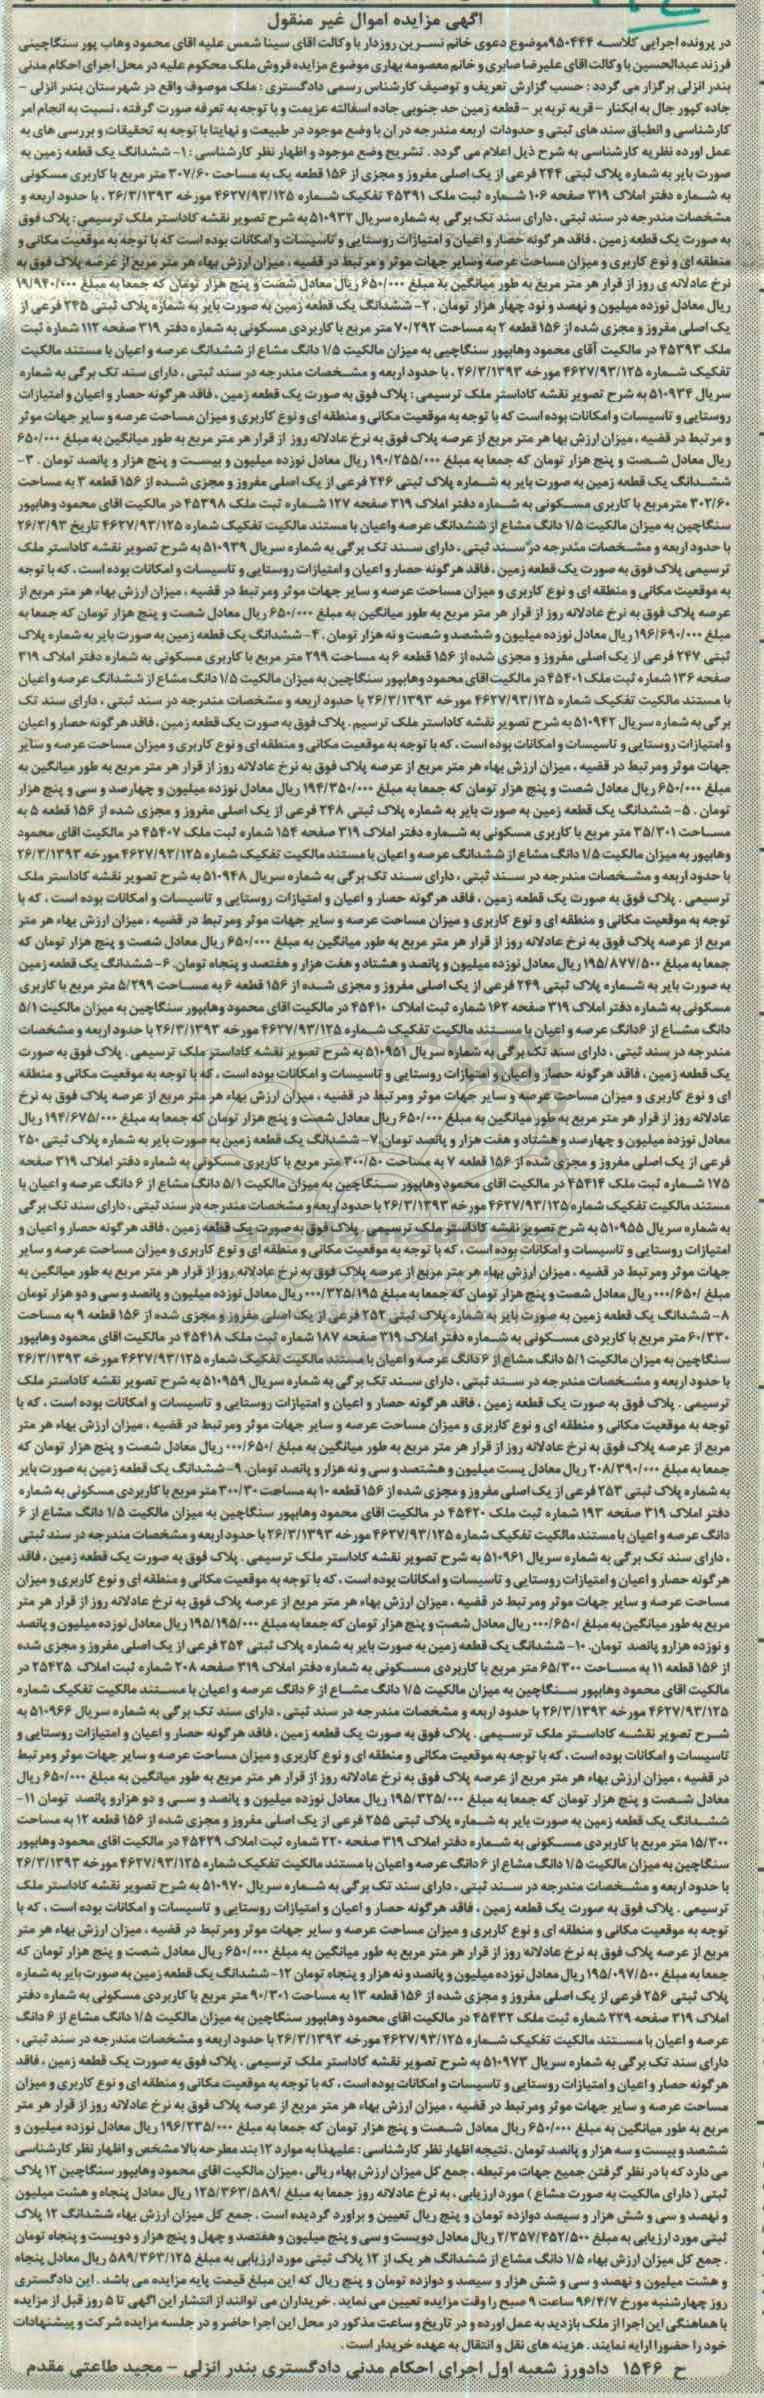 آگهی مزایده اموال غیر منقول
در پرونده اجرایی کلاسه ۹۵۰۴۴۴موضوع دعوی خانم نسرین روزدار با وکالت اقای سینا شمس علیه اقای محمود وهاب پور سنگاچینی
فرزند عبدالحسین با وکالت اقای علیرضا صابری و خانم معصومه بهاری موضوع مزایده فروش ملک محکوم علیه در محل اجرای احکام مدنی
بندر انزلی برگزار می گردد : حسب گزارش تعریف و توصیف کارشناس رسمی دادگستری : ملک موصوف واقع در شهرستان بندر انزلی -
جاده کپور چال به ابکنار - قریه تربه بر - قطعه زمین حد جنوبی جاده اسفالته عزیمت و با توجه به تعرفه صورت گرفته ، نسبت به انجام امر
کارشناسی و انطباق سند های ثبتی و حدودات اربعه مندرجه در ان با وضع موجود در طبیعت و نهایتا با توجه به تحقیقات و بررسی های به
عمل اورده نظریه کارشناسی به شرح ذیل اعلام می گردد . تشریح وضع موجود و اظهار نظر کارشناسی : ۱- ششدانگ یک قطعه زمین به
صورت بایر به شماره پلاک ثبتی ۲۴۴ فرعی از یک اصلی مفروز و مجزی از ۱۵۶ قطعه یک به مساحت ۳۰۷/۶۰ متر مربع با کاربری مسکونی
به شماره دفتر املاک ۳۱۹ صفحه ۱۰۶ شماره ثبت ملک ۴۵۳۹۱ تفکیک شماره ۴۶۲۷/۹۳/۱۲۵ مورخه ۲۶/۳/۱۳۹۳ ، با حدود اربعه و
مشخصات مندرجه در سند ثبتی ، دارای سند تک برگی به شماره سریال ۵۱۰۹۳۲ به شرح تصویر نقشه کاداستر ملک ترسیمی : پلاک فوق
به صورت یک قطعه زمین ، فاقد هرگونه حصار و اعیان و امتیازات روستایی و تاسیسات و امکانات بوده است که با توجه به موقعیت مکانی و
منطقه ای و نوع کاربری و میزان مساحت عرصه وسایر جهات موثر و مرتبط در قضیه ، میزان ارزش بهاء هر متر مربع از عرصه پلاک فوق به
نرخ عادلانه ی روز از قرار هر متر مربع به طور میانگین به مبلغ ۶۵۰/۰۰۰ ریال معادل شصت و پنج هزار تومان که جمعا به مبلغ ۱۹/۹۴۰/۰۰۰
ریال معادل نوزده میلیون و نهصد و نود چهار هزار تومان . ۲- ششدانگ یک قطعه زمین به صورت بایر به شماره پلاک ثبتی ۲۴۵ فرعی از
یک اصلی مفروز و مجزی شده از ۱۵۶ قطعه ۲ به مساحت ۷۰/۲۹۲ متر مربع با کاربردی مسکونی به شماره دفتر ۳۱۹ صفحه ۱۱۲ شماره ثبت
ملک ۴۵۳۹۳ در مالکیت آقای محمود وهابپور سنگاچینی به میزان مالکیت ۱/۵ دانگ مشاع از ششدانگ عرصه و اعیان با مستند مالکیت
تفکیک شماره ۴۶۲۷/۹۳/۱۲۵ مورخه ۲۶/۳/۱۳۹۳ ، با حدود اربعه و مشخصات مندرجه در سند ثبتی ، دارای سند تک برگی به شماره
سریال ۵۱۰۹۳۴ به شرح تصویر نقشه کاداستر ملک ترسیمی : پلاک فوق به صورت یک قطعه زمین ، فاقد هرگونه حصار و اعیان و امتیازات
روستایی و تاسیسات و امکانات بوده است که با توجه به موقعیت مکانی و منطقه ای و نوع کاربری و میزان مساحت عرصه و سایر جهات موثر
و مرتبط در قضیه ، میزان ارزش بها هر متر مربع از عرصه پلاک فوق به نرخ عادلانه روز از قرار هر متر مربع به طور میانگین به مبلغ ۶۵۰/۰۰۰
ریال معادل شصت و پنج هزار تومان که جمعا به مبلغ ۱۹۰/۲۵۵/۰۰۰ ریال معادل نوزده میلیون و بیست و پنج هزار و پانصد تومان . ۳-
ششدانگ یک قطعه زمین به صورت بایر به شماره پلاک ثبتی ۲۴۶ فرعی از یک اصلی مفروز و مجزی شده از ۱۵۶ قطعه ۳ به مساحت
۳۰۲/۶۰ مترمربع با کاربری مسکونی به شماره دفتر املاک ۳۱۹ صفحه ۱۲۷ شماره ثبت ملک ۴۵۳۹۸ در مالکیت اقای محمود وهابپور
سنگاچین به میزان مالکیت ۱/۵ دانگ مشاع از ششدانگ عرصه واعیان با مستند مالکیت تفکیک شماره ۴۶۲۷/۹۳/۱۲۵ تاریخ ۲۶/۳/۹۳
با حدود اربعه و مشخصات مندرجه در سند ثبتی ، دارای سند تک برگی به شماره سریال ۵۱۰۹۳۹ به شرح تصویر نقشه کاداستر ملک
ترسیمی پلاک فوق به صورت یک قطعه زمین ، فاقد هرگونه حصار و اعیان و امتیازات روستایی و تاسیسات و امکانات بوده است ، که با توجه
به موقعیت مکانی و منطقه ای و نوع کاربری و میزان مساحت عرصه و سایر جهات موثر ومرتبط در قضیه ، میزان ارزش بهاء هر متر مربع از
عرصه پلاک فوق به نرخ عادلانه روز از قرار هر متر مربع به طور میانگین به مبلغ ۶۵۰/۰۰۰ ریال معادل شصت و پنج هزار تومان که جمعا به
مبلغ ۱۹۶/۶۹۰/۰۰۰ ریال معادل نوزده میلیون و ششصد و شصت و نه هزار تومان . ۴- ششدانگ یک قطعه زمین به صورت بایر به شماره پلاک
ثبتی ۲۴۷ فرعی از یک اصلی مفروز و مجزی شده از ۱۵۶ قطعه ۶ به مساحت ۲۹۹ متر مربع با کاربری مسکونی به شماره دفتر املاک ۳۱۹
صفحه ۱۳۶ شماره ثبت ملک ۴۵۴۰۱ در مالکیت اقای محمود وهابپور سنگاچین به میزان مالکیت ۱/۵ دانگ مشاع از ششدانگ عرصه و اعیان
با مستند مالکیت تفکیک شماره ۴۶۲۷/۹۳/۱۲۵ مورخه ۲۶/۳/۱۳۹۳ با حدود اربعه و مشخصات مندرجه در سند ثبتی ، دارای سند تک
برگی به شماره سریال ۵۱۰۹۴۲ به شرح تصویر نقشه کاداستر ملک ترسیم . پلاک فوق به صورت یک قطعه زمین ، فاقد هرگونه حصار و اعیان
و امتیازات روستایی و تاسیسات و امکانات بوده است ، که با توجه به موقعیت مکانی و منطقه ای و نوع کاربری و میزان مساحت عرصه و سایر
جهات موثر ومرتبط در قضیه ، میزان ارزش بهاء هر متر مربع از عرصه پلاک فوق به نرخ عادلانه روز از قرار هر متر مربع به طور میانگین به
مبلغ ۶۵۰/۰۰۰ ریال معادل شصت و پنج هزار تومان که جمعا به مبلغ ۱۹۴/۳۵۰/۰۰۰ ریال معادل نوزده میلیون و چهارصد و سی و پنج هزار
تومان . ۵- ششدانگ یک قطعه زمین به صورت بایر به شماره پلاک ثبتی ۲۴۸ فرعی از یک اصلی مفروز و مجزی شده از ۱۵۶ قطعه ۵ به
مساحت ۳۵/۳۰۱ متر مربع با کاربری مسکونی به شماره دفتر املاک ۳۱۹ صفحه ۱۵۴ شماره ثبت ملک ۴۵۴۰۷ در مالکیت اقای محمود
وهابپور به میزان مالکیت ۱/۵ دانگ مشاع از ششدانگ عرصه و اعیان با مستند مالکیت تفکیک شماره ۴۶۲۷/۹۳/۱۲۵ مورخه ۲۶/۳/۱۳۹۳
با حدود اربعه و مشخصات مندرجه در سند ثبتی ، دارای سند تک برگی به شماره سریال ۵۱۰۹۴۸ به شرح تصویر نقشه کاداستر ملک
ترسیمی . پلاک فوق به صورت یک قطعه زمین ، فاقد هرگونه حصار و اعیان و امتیازات روستایی و تاسیسات و امکانات بوده است ، که با
توجه به موقعیت مکانی و منطقه ای و نوع کاربری و میزان مساحت عرصه و سایر جهات موثر ومرتبط در قضیه ، میزان ارزش بهاء هر متر
مربع از عرصه پلاک فوق به نرخ عادلانه روز از قرار هر متر مربع به طور میانگین به مبلغ ۶۵۰/۰۰۰ ریال معادل شصت و پنج هزار تومان که
جمعا به مبلغ ۱۹۵/۸۷۷/۵۰۰ ریال معادل نوزده میلیون و پانصد و هشتاد و هفت هزار و هفتصد و پنجاه تومان. ۶- ششدانگ یک قطعه زمین
به صورت بایر به شماره پلاک ثبتی ۲۴۹ فرعی از یک اصلی مفروز و مجزی شده از ۱۵۶ قطعه ۶ به مساحت ۵/۲۹۹ متر مربع با کاربری
مسکونی به شماره دفتر املاک ۳۱۹ صفحه ۱۶۲ شماره ثبت املاک ۴۵۴۱۰ در مالکیت اقای محمود وهابپور سنگاچین به میزان مالکیت ۵/۱
دانگ مشاع از ۶دانگ عرصه و اعیان با مستند مالکیت تفکیک شماره ۴۶۲۷/۹۳/۱۲۵ مورخه ۲۶/۳/۱۳۹۳ با حدود اربعه و مشخصات
مندرجه در سند ثبتی ، دارای سند تک برگی به شماره سریال ۵۱۰۹۵۱ به شرح تصویر نقشه کاداستر ملک ترسیمی . پلاک فوق به صورت
یک قطعه زمین ، فاقد هرگونه حصار و اعیان و امتیازات روستایی و تاسیسات و امکانات بوده است ، که با توجه به موقعیت مکانی و منطقه
ای و نوع کاربری و میزان مساحت عرصه و سایر جهات موثر ومرتبط در قضیه ، میزان ارزش بهاء هر متر مربع از عرصه پلاک فوق به نرخ
عادلانه روز از قرار هر متر مربع به طور میانگین به مبلغ ۶۵۰/۰۰۰ ریال معادل شصت و پنج هزار تومان که جمعا به مبلغ ۱۹۴/۶۷۵/۰۰۰ ریال
معادل نوزده میلیون و چهارصد و هشتاد و هفت هزار و پانصد تومان.۷- ششدانگ یک قطعه زمین به صورت بایر به شماره پلاک ثبتی ۲۵۰
فرعی از یک اصلی مفروز و مجزی شده از ۱۵۶ قطعه ۷ به مساحت ۳۰۰/۵۰ متر مربع با کاربری مسکونی به شماره دفتر املاک ۳۱۹ صفحه
۱۷۵ شماره ثبت ملک ۴۵۴۱۴ در مالکیت اقای محمود وهابپور سنگاچین به میزان مالکیت ۵/۱ دانگ مشاع از ۶ دانگ عرصه و اعیان با
مستند مالکیت تفکیک شماره ۴۶۲۷/۹۳/۱۲۵ مورخه ۲۶/۳/۱۳۹۳ با حدود اربعه و مشخصات مندرجه در سند ثبتی ، دارای سند تک برگی
به شماره سریال ۵۱۰۹۵۵ به شرح تصویر نقشه کاداستر ملک ترسیمی . پلاک فوق به صورت یک قطعه زمین ، فاقد هرگونه حصار و اعیان و
امتیازات روستایی و تاسیسات و امکانات بوده است ، که با توجه به موقعیت مکانی و منطقه ای و نوع کاربری و میزان مساحت عرصه و سایر
جهات موثر ومرتبط در قضیه ، میزان ارزش بهاء هر متر مربع از عرصه پلاک فوق به نرخ عادلانه روز از قرار هر متر مربع به طور میانگین به
مبلغ ۰۰۰/۶۵۰/ ریال معادل شصت و پنج هزار تومان که جمعا به مبلغ ۰۰۰/۳۲۵/۱۹۵ ریال معادل نوزده میلیون و پانصد و سی و دو هزار تومان
۸- ششدانگ یک قطعه زمین به صورت بایر به شماره پلاک ثبتی ۲۵۲ فرعی از یک اصلی مفروز و مجزی شده از ۱۵۶ قطعه ۹ به مساحت
۶۰/۳۳۰ متر مربع با کاربردی مسکونی به شماره دفتر املاک ۳۱۹ صفحه ۱۸۷ شماره ثبت ملک ۴۵۴۱۸ در مالکیت اقای محمود وهابپور
سنگاچین به میزان مالکیت ۵/۱ دانگ مشاع از ۶دانگ عرصه و اعیان با مستند مالکیت تفکیک شماره ۴۶۲۷/۹۳/۱۲۵ مورخه ۲۶/۳/۱۳۹۳
با حدود اربعه و مشخصات مندرجه در سند ثبتی ، دارای سند تک برگی به شماره سریال ۵۱۰۹۵۹ به شرح تصویر نقشه کاداستر ملک
ترسیمی . پلاک فوق به صورت یک قطعه زمین ، فاقد هرگونه حصار و اعیان و امتیازات روستایی و تاسیسات و امکانات بوده است ، که با
توجه به موقعیت مکانی و منطقه ای و نوع کاربری و میزان مساحت عرصه و سایر جهات موثر ومرتبط در قضیه ، میزان ارزش بهاء هر متر
مربع از عرصه پلاک فوق به نرخ عادلانه روز از قرار هر متر مربع به طور میانگین به مبلغ ۰۰۰/۶۵۰/ ریال معادل شصت و پنج هزار تومان که
جمعا به مبلغ ۲۰۸/۳۹۰/۰۰۰ ریال معادل بیست میلیون و هشتصد و سی و نه هزار و پانصد تومان. ۹- ششدانگ یک قطعه زمین به صورت بایر
به شماره پلاک ثبتی ۲۵۳ فرعی از یک اصلی مفروز و مجزی شده از ۱۵۶ قطعه ۱۰ به مساحت ۳۰۰/۳۰ متر مربع با کاربردی مسکونی به شماره
دفتر املاک ۳۱۹ صفحه ۱۹۳ شماره ثبت ملک ۴۵۴۲۰ در مالکیت اقای محمود وهابپور سنگاچین به میزان مالکیت ۱/۵ دانگ مشاع از ۶
دانگ عرصه و اعیان با مستند مالکیت تفکیک شماره ۴۶۲۷/۹۳/۱۲۵ مورخه ۲۶/۳/۱۳۹۳ با حدود اربعه و مشخصات مندرجه در سند ثبتی
، دارای سند تک برگی به شماره سریال ۵۱۰۹۶۱ به شرح تصویر نقشه کاداستر ملک ترسیمی . پلاک فوق به صورت یک قطعه زمین ، فاقد
هرگونه حصار و اعیان و امتیازات روستایی و تاسیسات و امکانات بوده است ، که با توجه به موقعیت مکانی و منطقه ای و نوع کاربری و میزان
مساحت عرصه و سایر جهات موثر ومرتبط در قضیه ، میزان ارزش بهاء هر متر مربع از عرصه پلاک فوق به نرخ عادلانه روز از قرار هر متر
مربع به طور میانگین به مبلغ ۰۰۰/۶۵۰/ ریال معادل شصت و پنج هزار تومان که جمعا به مبلغ ۱۹۵/۱۹۵/۰۰۰ ریال معادل نوزده میلیون و پانصد
و نوزده هزارو پانصد تومان. ۱۰- ششدانگ یک قطعه زمین به صورت بایر به شماره پلاک ثبتی ۲۵۴ فرعی از یک اصلی مفروز و مجزی شده
از ۱۵۶ قطعه ۱۱ به مساحت ۶۵/۳۰۰ متر مربع با کاربردی مسکونی به شماره دفتر املاک ۳۱۹ صفحه ۲۰۸ شماره ثبت املاک ۲۵۴۲۵ در
مالکیت اقای محمود وهابپور سنگاچین به میزان مالکیت ۱/۵ دانگ مشاع از ۶ دانگ عرصه و اعیان با مستند مالکیت تفکیک شماره
۴۶۲۷/۹۳/۱۲۵ مورخه ۲۶/۳/۱۳۹۳ با حدود اربعه و مشخصات مندرجه در سند ثبتی ، دارای سند تک برگی به شماره سریال ۵۱۰۹۶۶ به
شرح تصویر نقشه کاداستر ملک ترسیمی . پلاک فوق به صورت یک قطعه زمین ، فاقد هرگونه حصار و اعیان و امتیازات روستایی و
تاسیسات و امکانات بوده است ، که با توجه به موقعیت مکانی و منطقه ای و نوع کاربری و میزان مساحت عرصه و سایر جهات موثر ومرتبط
در قضیه ، میزان ارزش بهاء هر متر مربع از عرصه پلاک فوق به نرخ عادلانه روز از قرار هر متر مربع به طور میانگین به مبلغ ۶۵۰/۰۰۰ ریال
معادل شصت و پنج هزار تومان که جمعا به مبلغ ۱۹۵/۳۲۵/۰۰۰ ریال معادل نوزده میلیون و پانصد و سی و دو هزارو پانصد تومان ۱۱-
ششدانگ یک قطعه زمین به صورت بایر به شماره پلاک ثبتی ۲۵۵ فرعی از یک اصلی مفروز و مجزی شده از ۱۵۶ قطعه ۱۲ به مساحت
۱۵/۳۰۰ متر مربع با کاربردی مسکونی به شماره دفتر املاک ۳۱۹ صفحه ۲۲۰ شماره ثبت املاک ۴۵۴۲۹ در مالکیت اقای محمود وهابپور
سنگاچین به میزان مالکیت ۱/۵ دانگ مشاع از ۶ دانگ عرصه و اعیان با مستند مالکیت تفکیک شماره ۴۶۲۷/۹۳/۱۲۵ مورخه ۲۶/۳/۱۳۹۳
با حدود اربعه و مشخصات مندرجه در سند ثبتی ، دارای سند تک برگی به شماره سریال ۵۱۰۹۷۰ به شرح تصویر نقشه کاداستر ملک
ترسیمی . پلاک فوق به صورت یک قطعه زمین ، فاقد هرگونه حصار و اعیان و امتیازات روستایی و تاسیسات و امکانات بوده است ، که با
توجه به موقعیت مکانی و منطقه ای و نوع کاربری و میزان مساحت عرصه و سایر جهات موثر ومرتبط در قضیه ، میزان ارزش بهاء هر متر
مربع از عرصه پلاک فوق به نرخ عادلانه روز از قرار هر متر مربع به طور میانگین به مبلغ ۶۵۰/۰۰۰ ریال معادل شصت و پنج هزار تومان که
جمعا به مبلغ ۱۹۵/۰۹۷/۵۰۰ ریال معادل نوزده میلیون و پانصد و نه هزار و پنجاه تومان ۱۲- ششدانگ یک قطعه زمین به صورت بایر به شماره
پلاک ثبتی ۲۵۶ فرعی از یک اصلی مفروز و مجزی شده از ۱۵۶ قطعه ۱۳ به مساحت ۹۰/۳۰۱ متر مربع با کاربردی مسکونی به شماره دفتر
املاک ۳۱۹ صفحه ۲۲۹ شماره ثبت ملک ۴۵۴۳۲ در مالکیت اقای محمود وهابپور سنگاچین به میزان مالکیت ۱/۵ دانگ مشاع از ۶ دانگ
عرصه و اعیان با مستند مالکیت تفکیک شماره ۴۶۲۷/۹۳/۱۲۵ مورخه ۲۶/۳/۱۳۹۳ با حدود اربعه و مشخصات مندرجه در سند ثبتی ،
دارای سند تک برگی به شماره سریال ۵۱۰۹۷۳ به شرح تصویر نقشه کاداستر ملک ترسیمی . پلاک فوق به صورت یک قطعه زمین ، فاقد
هرگونه حصار و اعیان و امتیازات روستایی و تاسیسات و امکانات بوده است ، که با توجه به موقعیت مکانی و منطقه ای و نوع کاربری و میزان
مساحت عرصه و سایر جهات موثر ومرتبط در قضیه ، میزان ارزش بهاء هر متر مربع از عرصه پلاک فوق به نرخ عادلانه روز از قرار هر متر
مربع به طور میانگین به مبلغ ۶۵۰/۰۰۰ ریال معادل شصت و پنج هزار تومان که جمعا به مبلغ ۱۹۶/۲۳۵/۰۰۰ ریال معادل نوزده میلیون و
ششصد و بیست و سه هزار و پانصد تومان . نتیجه اظهار نظر کارشناسی : علیهذا به موارد ۱۲ بند مطرحه بالا مشخص و اظهار نظر کارشناسی
می دارد که با در نظر گرفتن جمیع جهات مرتبطه ، جمع کل میزان ارزش بهاء ریالی ، میزان مالکیت اقای محمود وهابپور سنگاچین ۱۲ پلاک
ثبتی ( دارای مالکیت به صورت مشاع ) مورد ارزیابی ، به نرخ عادلانه روز جمعا به مبلغ ۱۲۵/۳۶۳/۵۸۹/ ریال معادل پنجاه و هشت میلیون
و نهصد و سی و شش هزار و سیصد دوازده تومان و پنج ریال تعیین و براورد گردیده است . جمع کل میزان ارزش بهاء ششدانگ ۱۲ پلاک
ثبتی مورد ارزیابی به مبلغ ۲/۳۵۷/۴۵۲/۵۰۰ ریال معادل دویست و سی و پنج میلیون و هفتصد و چهل و پنج هزار و دویست و پنجاه تومان
. جمع کل میزان ارزش بهاء ۱/۵ دانگ مشاع از ششدانگ هر یک از ۱۲ پلاک ثبتی مورد ارزیابی به مبلغ ۵۸۹/۳۶۳/۱۲۵ ریال معادل پنجاه
و هشت میلیون و نهصد و سی و شش هزار و سیصد و دوازده تومان و پنج ریال که این مبلغ قیمت پایه مزایده می باشد . این دادگستری
روز چهارشنبه مورخ ۹۶/۴/۷ ساعت ۹ صبح را وقت مزایده تعیین می نماید . خریداران می توانند از انتشار این اگهی تا ۵ روز قبل از مزایده
با هماهنگی این اجرا از ملک بازدید به عمل اورده و در تاریخ و ساعت مذکور در محل این اجرا حاضر و در جلسه مزایده شرکت و پیشنهادات
خود را حضورا ارایه نمایند . هزینه های نقل و انتقال به عهده خریدار است .
ح ۱۵۴۶ دادورز شعبه اول اجرای احکام مدنی دادگستری بندر انزلی - مجید طاعتی مقدم